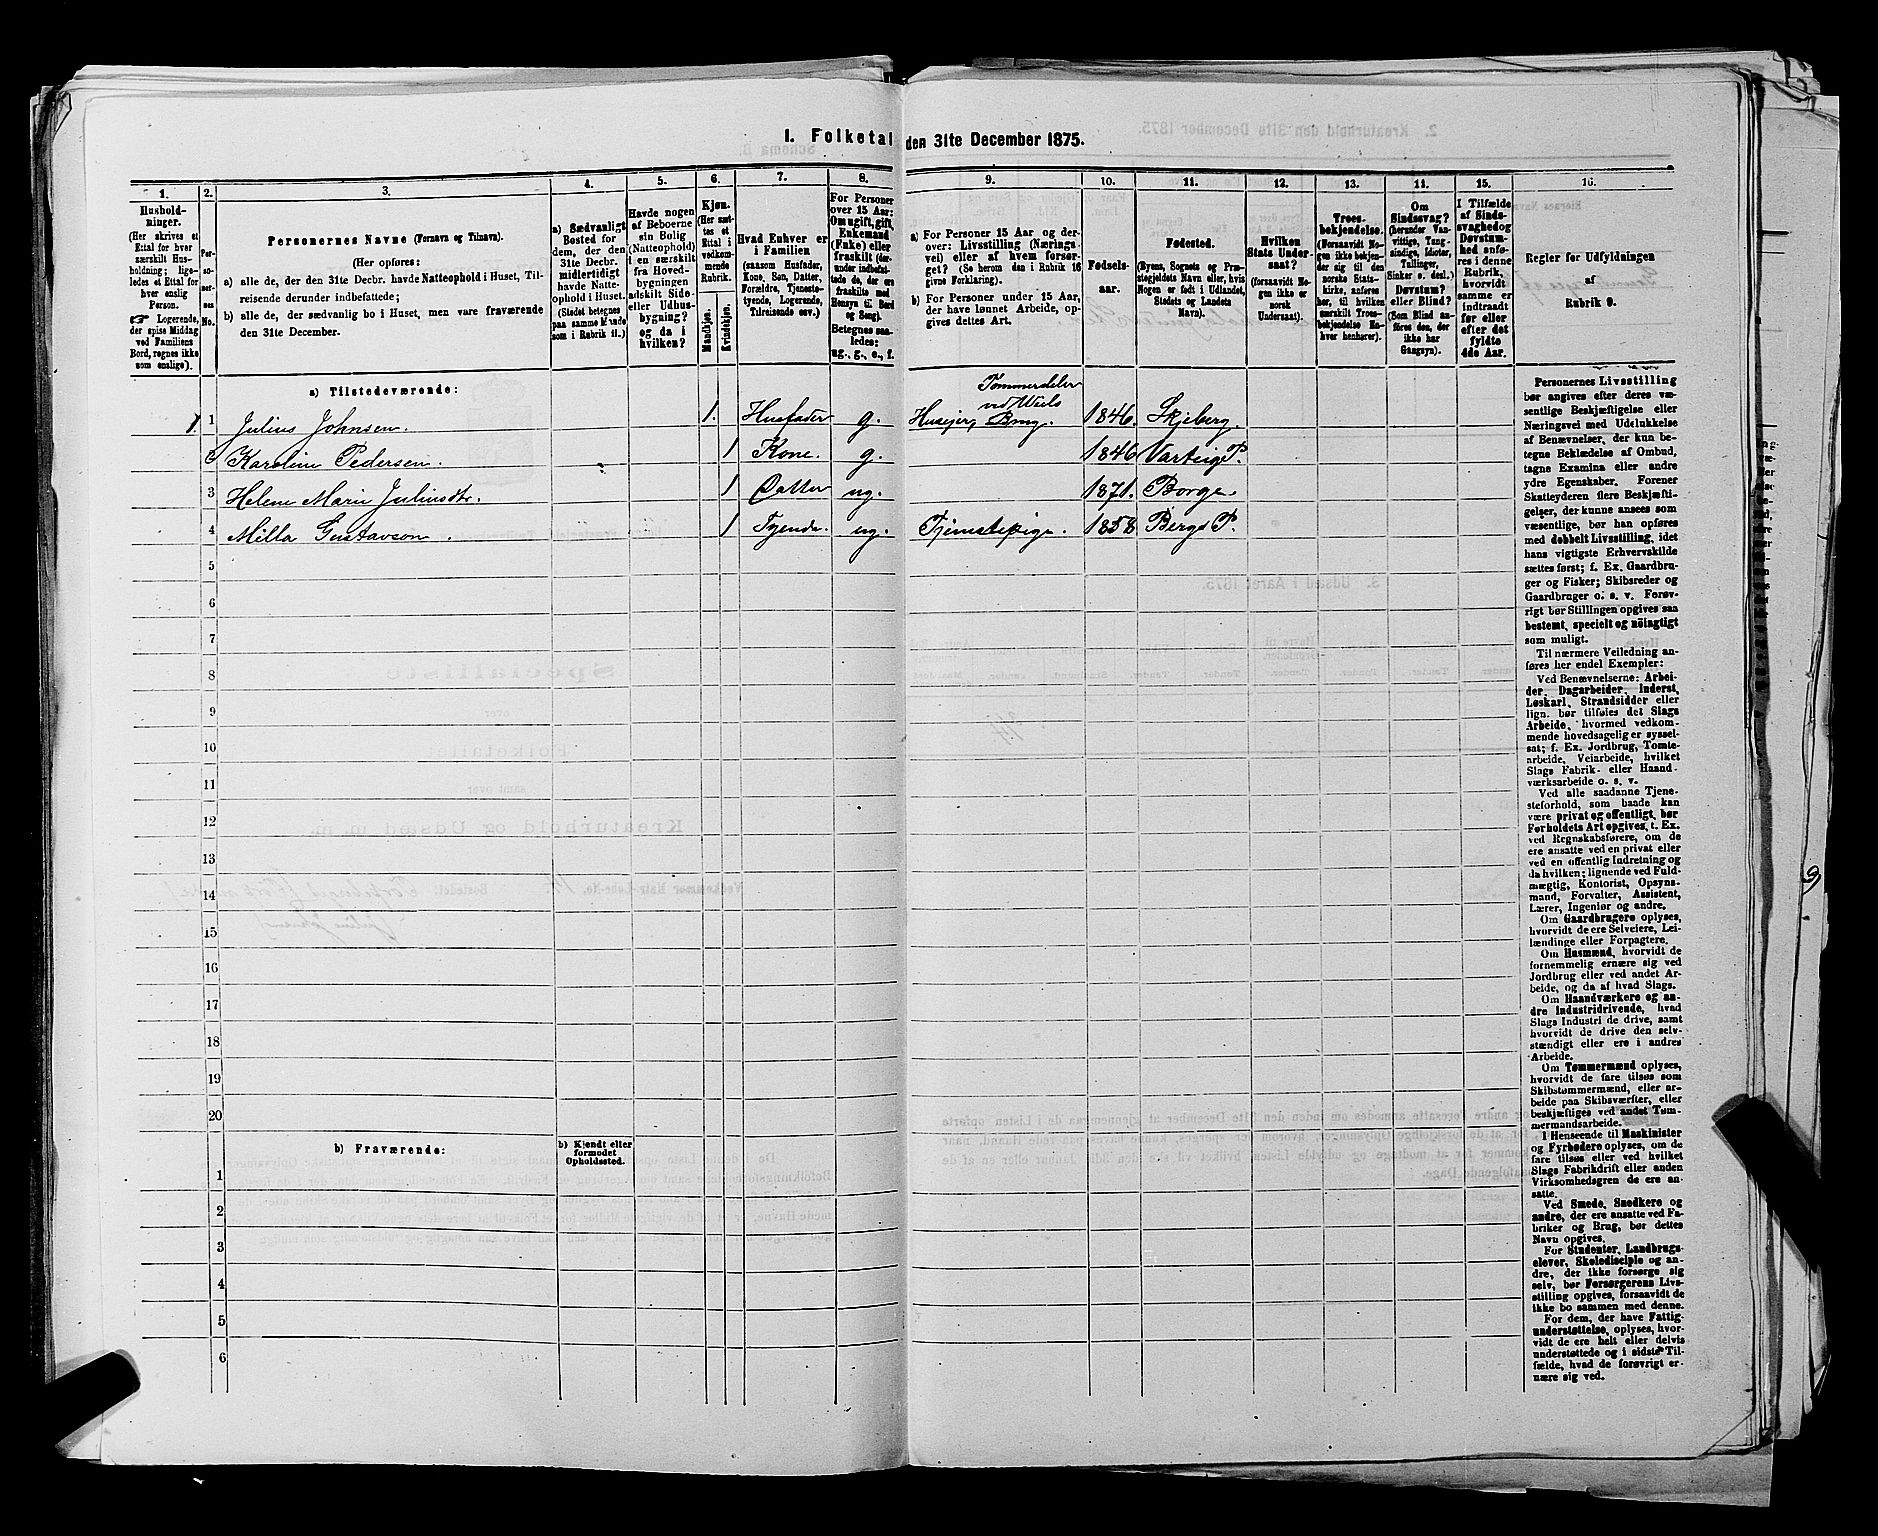 I. Folketal den 31te December 1875.
1.
2.
3.
4.
5.
6.
7.
8.
9.
10.
11.
12.
13.
14.
15.
16.
Hushold-
ninger.
(Her skrives et
Ettal for hver
særskilt Hus-
holdning; lige-
ledes et Ettal for
hver enslig
Person.
☞ Logerende,
der spise Middag
ved Familiens
Bord, regnes ikke
som enslige).
Per-
so-
ner-
nes
No.
Personernes Navne (Fornavn og Tilnavn).
(Her opføres:
a) alle de, der den 31te Decbr. havde Natteophold i Huset, Til-
reisende derunder indbefattede;
b) alle de, der sædvanlig bo i Huset, men vare fraværende
den 31te December.
a) Sædvanligt
Bosted for
dem, der den
31te Decbr.
midlertidigt
havde Natte-
ophold i Huset.
(Stedet betegnes
paa samme Maade
som i Rubrik 11.)
Havde nogen
af Beboerne
sin Bolig
(Natteophold)
i en særskilt
fra Hoved-
bygningen
adskilt Side-
eller Udhus-
bygning?
og da i
hvilken?
Kjøn.
(Her sæt-
tes et
Ettal i
vedkom-
mende
Rubrik.
Mandkjøn.
Kvindekjøn.
Hvad Enhver er
i Familien
(saasom Husfader,
Kone, Søn, Datter,
Forældre, Tjeneste-
tyende, Logerende,
Tilreisende osv.)
For Personer
over 15 Aar:
Om ugift, gift,
Enkemand
(Enke) eller
fraskilt (der-
under indbefat-
tede de, der ere
fraskilte med
Hensyn til Bord
og Seng).
Betegnes saa-
ledes:
ug., g., e., f.
a) For Personer 15 Aar og der-
over: Livsstilling (Nærings-
vei) eller af hvem forsør-
get? (Se herom den i Rubrik 16
givne Forklaring).
b) For Personer under 15 Aar,
der have lønnet Arbeide, op-
gives dettes Art.
Fødsels-
aar.
Fødested.
(Byens, Sognets og Præ-
stegjeldets Navn eller, hvis
Nogen er født i Udlandet,
Stedets og Landets
Navn).
Hvilken
Stats Under-
saat?
(forsaavidt No-
gen ikke er
norsk
Undersaat).
Troes-
bekjendelse.
(Forsaavidt No-
gen ikke bekjen-
der sig til den
norske Stats-
kirke, anføres
her, til hvilken
særskilt Troes-
bekjendelse En-
hver henhører).
Om
Sindssvag?
(herunder Van-
vittige, Tung-
sindige, Idioter,
Tullinger,
Sinker o. desl.)
Døvstum?
eller Blind?
(Som Blind an-
føres den, der
ikke har
Gangsyn).
I Tilfælde
af Sinds-
svaghed og
Døvstum-
hed anfø-
res i denne
Rubrik,
hvorvidt
samme er
indtraadt
før eller
efter det
fyldte
4de Aar.
Regler for Udfyldningen
af
Rubrik 9.
a) Tilstedeværende:
Tømmerdeler
ved Wiels
1. 1 Julius Johnsen. 1. Husfader g. Huseier, Brug. 1846. Skjeberg.
2 Karoline Pedersen. 1 Kone. g. 1846 Varteig P.
3 Helene Marie Juliusdtr. 1 Datter ug. 1871. Borge
4 Milla Gustavson. 1 Tyende. ug. Tjenestepige. 1858 Bergs P.
5
6
7
8
9
10
11
12
13
14
15
16
17
18
19
20
b) Fraværende:
b) Kjendt eller
formodet
Opholdssted.
1
2
3
4
5
6
Personernes Livsstilling
bør angives efter deres væ-
sentlige Beskjæftigelse eller
Næringsvei med Udelukkelse
af Benævnelser, der kun be-
tegne Beklædelse af Ombud,
tagne Examina eller andre
ydre Egenskaber. Forener
Skatteyderen flere Beskjæfti-
gelser, der kunne ansees som
væsentlige, bør han opføres
med dobbelt Livsstilling, idet
hans vigtigste Erhvervskilde
sættes først; f. Ex. Gaardbru-
ger og Fisker; Skibsreder og
Gaardbruger o. s. v. Forøv-
rigt bør Stillingen opgives saa
bestemt, specielt og nöiagtigt
som muligt.
Til nærmere Veiledning an-
føres her endel Exempler:
Ved Benævnelserne: Arbei-
der, Dagarbeider, Inderst,
Løskarl, Strandsidder eller
lign. bør tilføies det Slags
Arbeide, hvormed vedkom-
mende hovedsagelig er syssel-
sat; f. Ex. Jordbrug, Tomte-
arbeide, Veiarbeide, hvilket
Slags Fabrik- eller Haand-
værksarbeide o. s. v.
Ved alle saadanne Tjene-
steforhold, som baade kan
være privat og offentligt, bør
Forholdets Art opgives, t. Ex.
ved Regnskabsførere, om de
ere ansatte ved en privat eller
ved en offentlig Indretning og
da hvilken; lignende ved Fuld-
mægtig, Kontorist, Opsyns-
mand, Forvalter, Assistent,
Lærer, Ingeniør og andre.
Om Gaardbrugere oplyses,
hvorvidt de ere Selveiere, Lei-
lændinge eller Forpagtere.
Om Husmænd, hvorvidt de
fornemmelig ernære sig ved
Jordbrug eller ved andet Ar-
beide, og da af hvad Slags.
Om Haandværkere og an-
dre industridrivende, hvad
Slags Industri de drive, samt
hvorvidt de drive den selv-
stændigt eller ere i andres
Arbeide.
Om Tømmermænd oplyses,
hvorvidt de fare tilsøs som
Skibstømmermænd, eller ar-
beide paa Skibsværfter, eller
beskjæftiges ved andet Tøm-
mermandsarbeide.
I Henseende til Maskinister
og Fyrbødere oplyses, om de
fare tilsøs eller ved hvilket
Slags Fabrikdrift eller anden
Virksomhedsgren de ere an-
satte.
Ved Smede, Snedkere og
andre, der ere ansatte ved Fa-
briker og Brug, bør dettes
Navn opgives.
For Studenter, Landbrugs-
elever, Skoledisciple og an-
dre, der ikke forsørge sig
selv, bør Forsørgerens Livs-
stilling opgives, forsaavidt de
ikke bo sammen med denne.
For dem, der have Fattig-
understøttelse, oplyses, hvor-
vidt de ere helt eller delvis
understøttede og i sidste Til-
fælde, hvad de forøvrigt er-
nære sig ved.